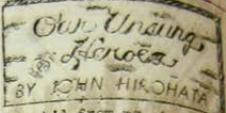 Our Unsung
Heroes
BY JOHN HIROHATA